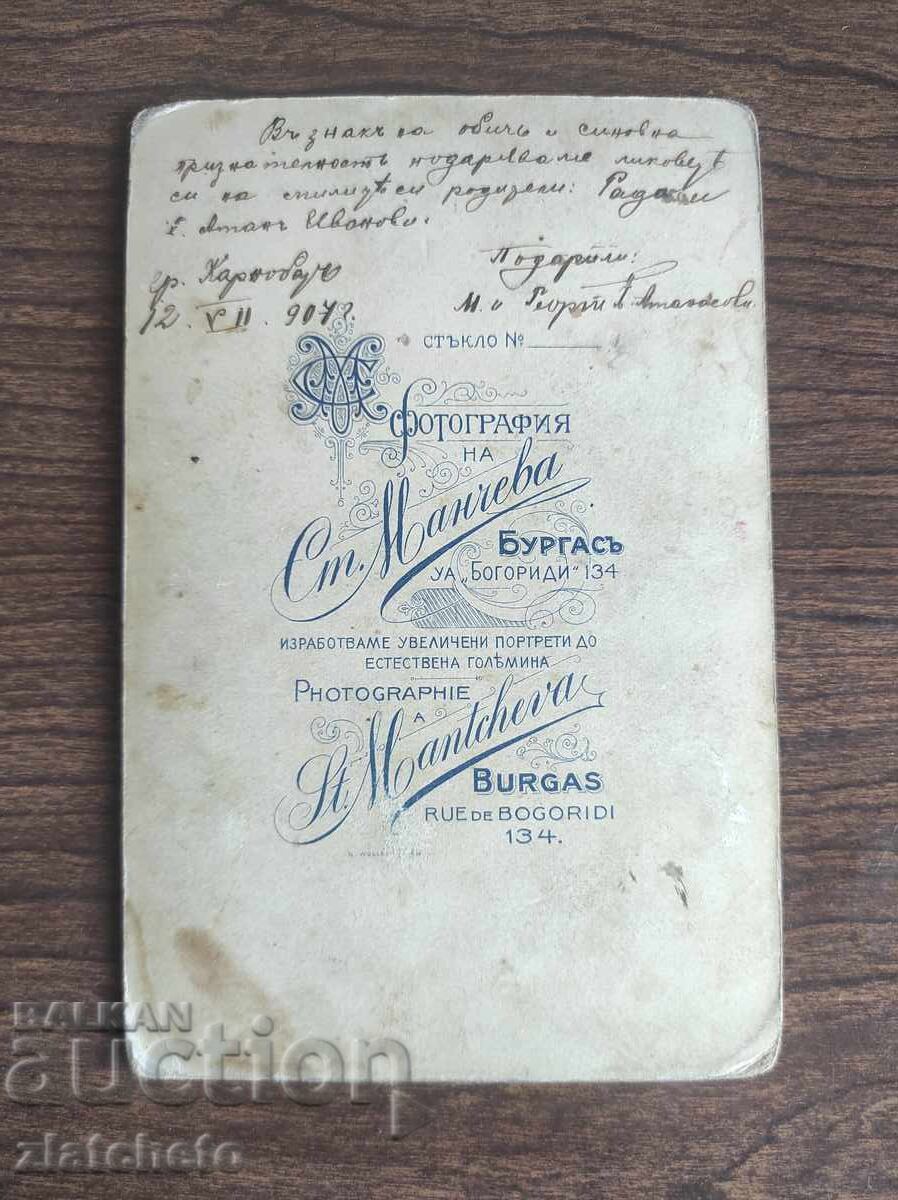 Въ знакъ на обичь и синовна
признателность подаряваме ликоветѣ
си на милитѣ си родители: Рада и
х. Атанъ Иванови.
гр. Карнобатъ
Подарили:
12. VII. 907 г.
М. и Георги х. Атанасови.
СТЪКЛО №
ФОТОГРАФИЯ
НА
Ст. Манчева
БУРГАСЪ
УА „БОГОРИДИ" 134
ИЗРАБОТВАМЕ УВЕЛИЧЕНИ ПОРТРЕТИ ДО
ЕСТЕСТВЕНА ГОЛѢМИНА
PHOTOGRAPHIE
A
St. Mantcheva
BURGAS
RUE DE BOGORIDI
134.
BALKAN
auction
zlatcheto